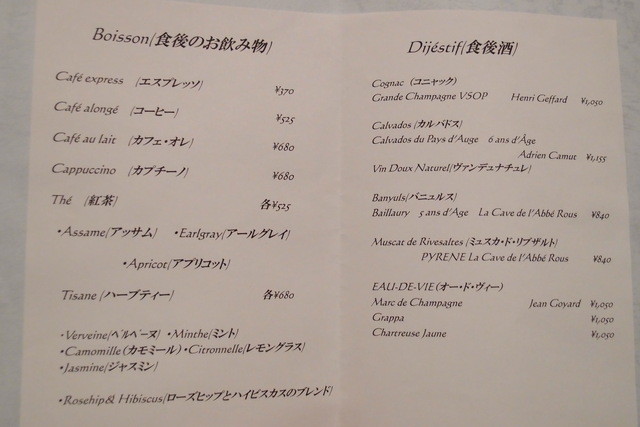 Boisson(食後のお飲み物)
Café express (エスプレッソ) ¥370
Café alongé (コーヒー) ¥525
Café au lait (カフェ・オレ) ¥680
Cappuccino (カプチーノ) ¥680
Thé (紅茶) 各¥525
・Assame(アッサム) ・Earlgray(アールグレイ)
・Apricot(アプリコット)
Tisane(ハーブティー) 各¥680
・Verveine(ベルベーヌ) ・Minthe(ミント)
・Camomille(カモミール)・Citronnelle(レモングラス)
・Jasmine(ジャスミン)
・Rosehip& Hibiscus(ローズヒップとハイビスカスのブレンド)
Dijéstif(食後酒)
Cognac (コニャック)
Grande Champagne VSOP Henri Geffard ¥1,050
Calvados (カルバドス)
Calvados du Pays d'Auge 6 ans d'Âge
Adrien Camut ¥1,155
Vin Doux Naturel(ヴァンデュナチュレ)
Banyuls(バニュルス)
Baillaury 5 ans d'Age La Cave de l'Abbé Rous ¥840
Muscat de Rivesaltes (ミュスカ・ド・リブザルト)
PYRENE La Cave de l'Abbé Rous ¥840
EAU-DE-VIE(オー・ド・ヴィー)
Marc de Champagne Jean Goyard ¥1,050
Grappa ¥1,050
Chartreuse Jaune ¥1,050